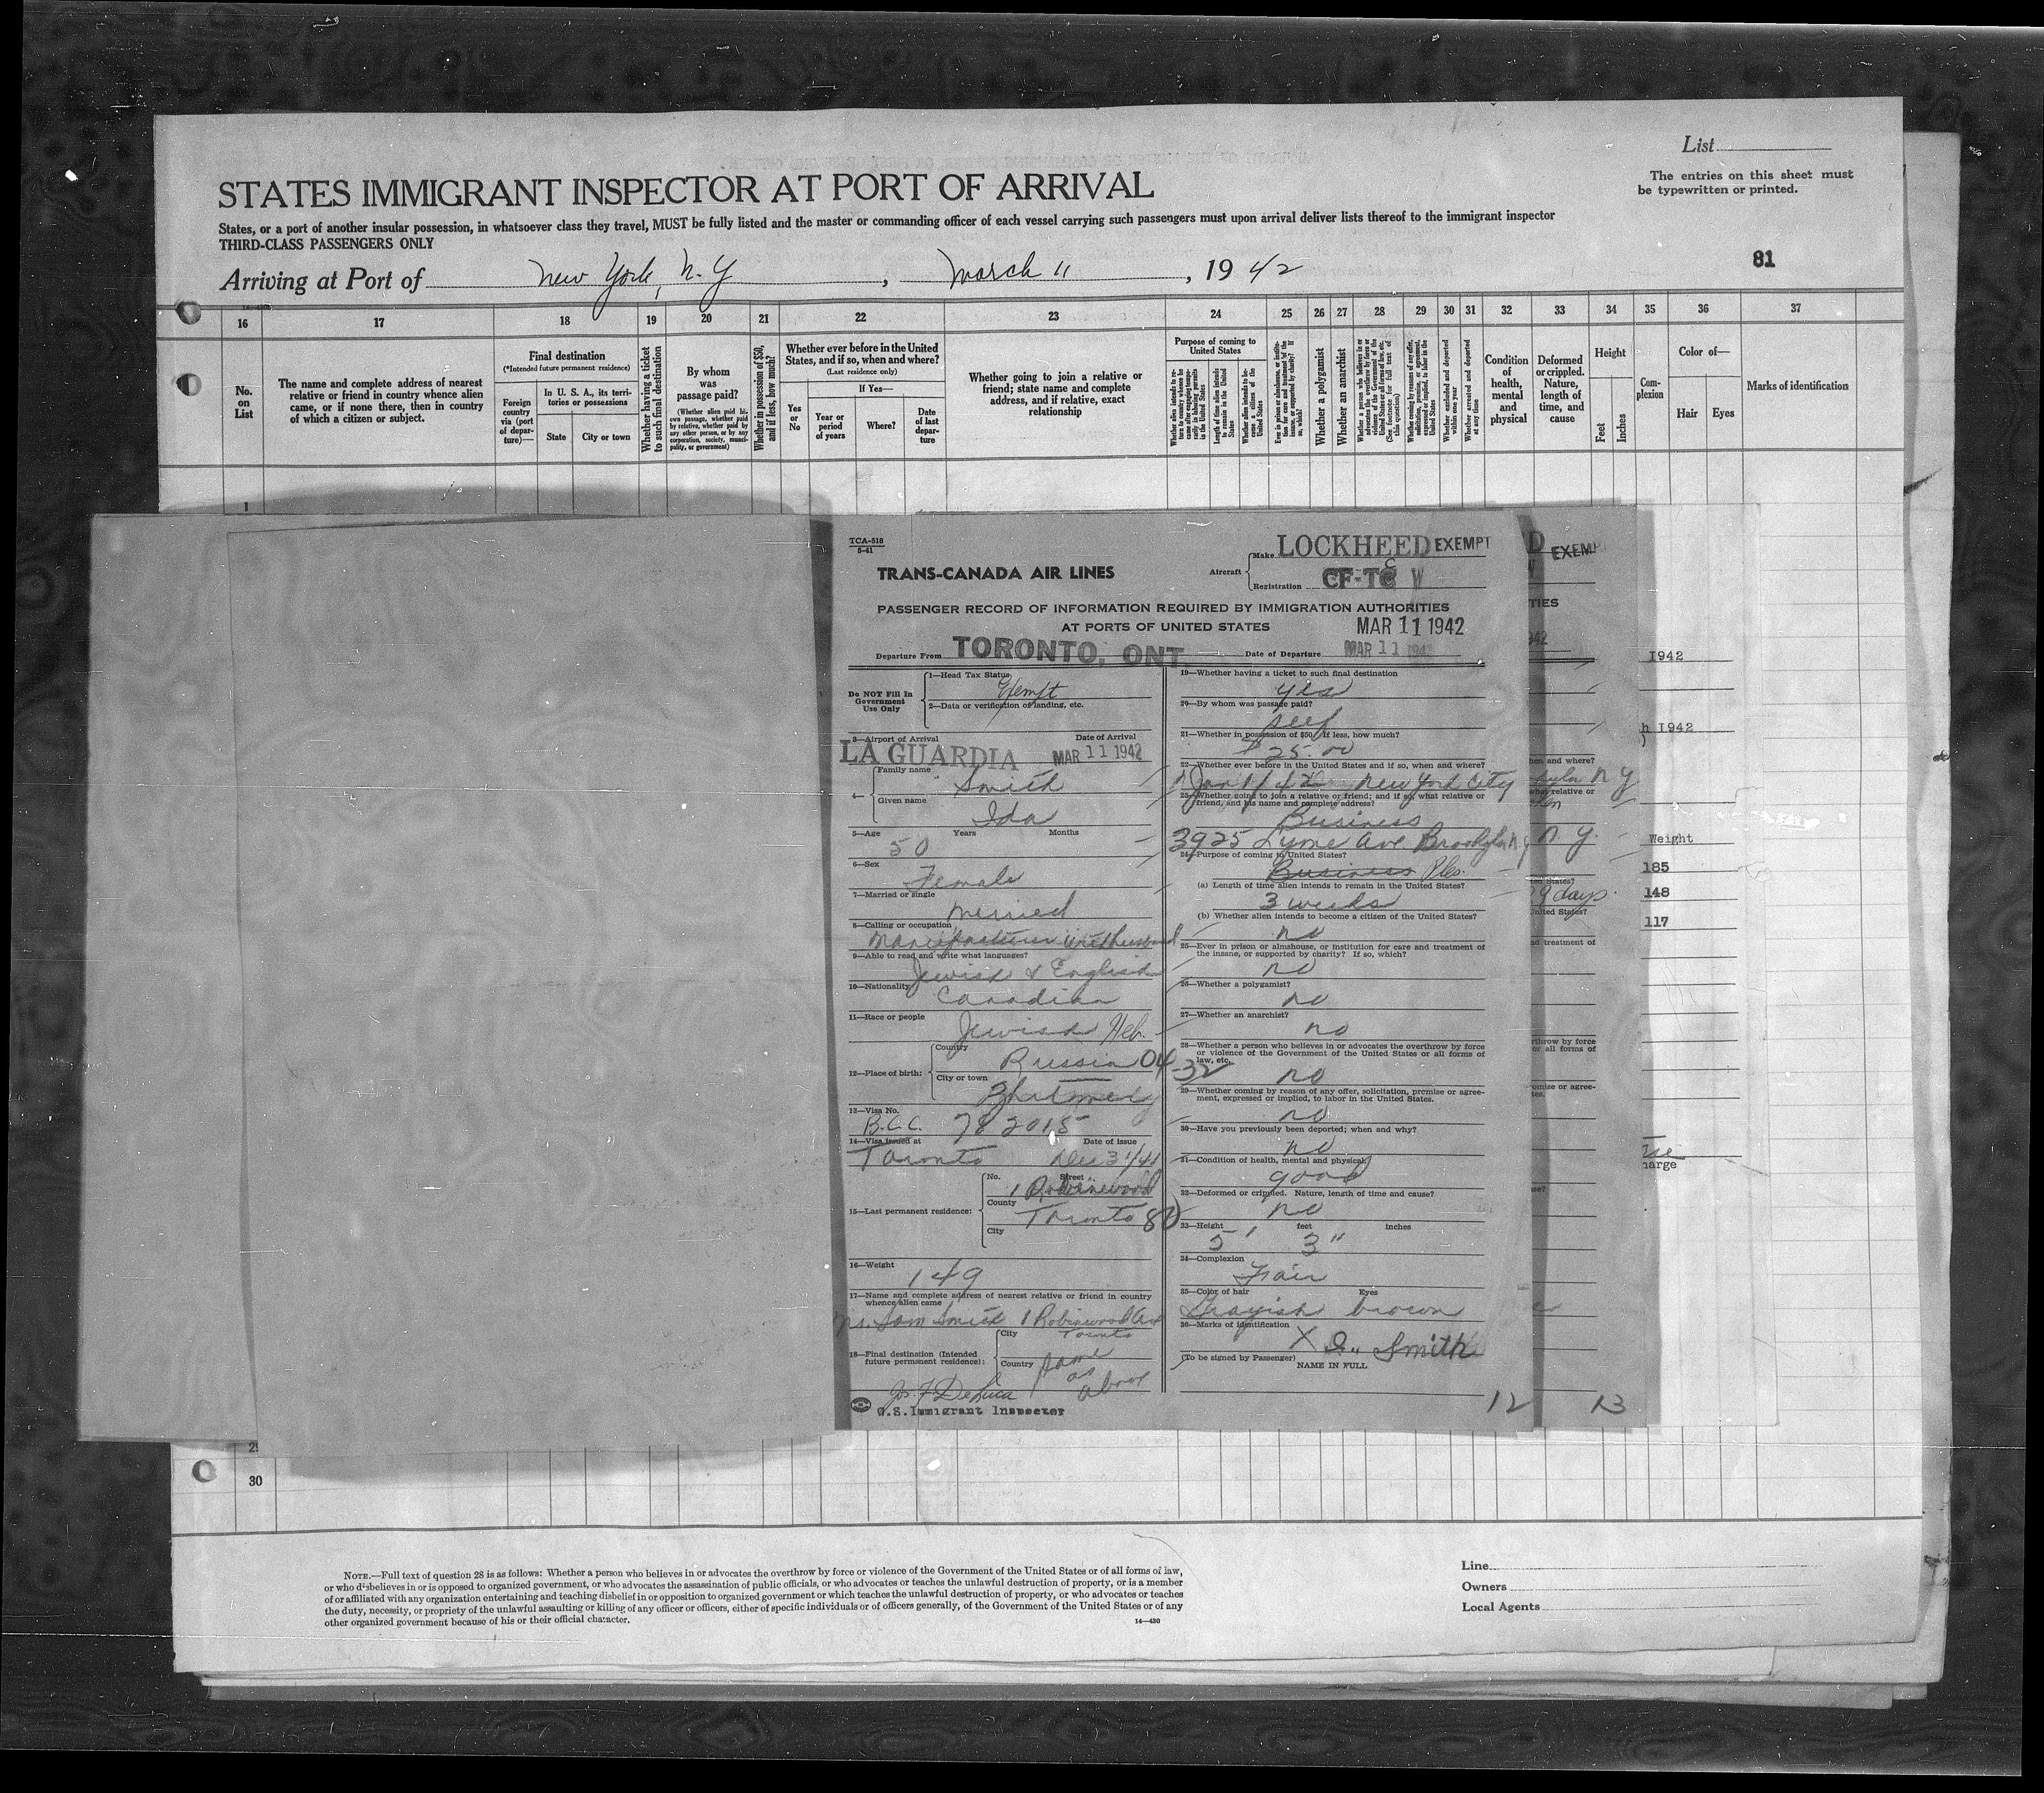 List
The entries on this sheet must
be typewritten or printed.
STATES IMMIGRANT INSPECTOR AT PORT OF ARRIVAL
States, or a port of another insular possession, in whatsoever class they travel, MUST be fully listed and the master or commanding officer of each vessel carrying such passengers must upon arrival deliver lists thereof to the immigrant inspector
THIRD-CLASS PASSENGERS ONLY
81
Arriving at Port of New York, N. Y , March 11 , 19 42
16 17 18 19 20 21 22 23 24 25 26 27 28 29 30 31 32 33 34 35 36 37
No. on List
The name and complete address of nearest
relative or friend in country whence alien
came, or if none there, then in country
of which a citizen or subject.
Final destination
(*Intended future permanent residence)
Foreign
country
via (port
of depar-
ture)—
In U. S. A., its terri-
tories or possessions
State
City or town
Whether having a ticket
to such final destination
By whom
was
passage paid?
(Whether alien paid his
own passage, whether paid
by relative, whether paid by
any other person, or by any
corporation, society, munici-
pality, or government)
Whether in possession of $50,
and if less, how much?
Whether ever before in the United
States, and if so, when and where?
(Last residence only)
If Yes—
Yes
or
No
Year or
period
of years
Where?
Date
of last
depar-
ture
Whether going to join a relative or
friend; state name and complete
address, and if relative, exact
relationship
Purpose of coming to
United States
Whether a polygamist
Whether an anarchist
Condition
of
health,
mental
and
physical
Deformed
or crippled.
Nature,
length of
time, and
cause
Height
Feet
Inches
Com-
plexion
Color of—
Hair
Eyes
Marks of identification
1
TCA-518
5-41
TRANS-CANADA AIR LINES
Aircraft
Make LOCKHEED EXEMPT
Registration CF-TC W
PASSENGER RECORD OF INFORMATION REQUIRED BY IMMIGRATION AUTHORITIES
AT PORTS OF UNITED STATES
MAR 11 1942
Departure From TORONTO, ONT
Date of Departure MAR 11 1942
Do NOT Fill In
Government
Use Only
1—Head Tax Status
Exempt
2—Data or verification of landing, etc.
3—Airport of Arrival Date of Arrival
LA GUARDIA MAR 11 1942
4— Family name
Smith
Given name
Ida
5—Age Years Months
50
6—Sex
Female
7—Married or single
Married
8—Calling or occupation
9—Able to read and write what languages?
Jewish & English
10—Nationality
Canadian
11—Race or people
Jewish Heb.
12—Place of birth:
Country
Russia
City or town
13—Visa No.
B.C.C. 782015
14—Visa issued at Date of issue
Toronto Dec 31/41
15—Last permanent residence:
No. Street
1 Robinwood
County
Toronto
City
16—Weight
149
17—Name and complete address of nearest relative or friend in country
whence alien came
Sam Smith 1 Robinwood Ave
Toronto
18—Final destination (Intended
future permanent residence):
City
Country
same
as
above
Jos. F DeLuca
U.S. Immigrant Inspector
19—Whether having a ticket to such final destination
yes
20—By whom was passage paid?
self
21—Whether in possession of $50. If less, how much?
$25.00
22—Whether ever before in the United States and if so, when and where?
New York City
23—Whether going to join a relative or friend; and if so, what relative or
friend, and his name and complete address?
Business
3925 Lyme Ave Brooklyn N Y
24—Purpose of coming to United States?
Business Ples.
(a) Length of time alien intends to remain in the United States?
3 weeks
(b) Whether alien intends to become a citizen of the United States?
no
25—Ever in prison or almshouse, or institution for care and treatment of
the insane, or supported by charity? If so, which?
no
26—Whether a polygamist?
no
27—Whether an anarchist?
no
28—Whether a person who believes in or advocates the overthrow by force
or violence of the Government of the United States or all forms of
law, etc.
no
29—Whether coming by reason of any offer, solicitation, promise or agree-
ment, expressed or implied, to labor in the United States.
no
30—Have you previously been deported; when and why?
no
31—Condition of health, mental and physical
good
32—Deformed or crippled. Nature, length of time and cause?
no
33—Height feet inches
5' 3"
34—Complexion
Fair
35—Color of hair Eyes
Grayish brown
36—Marks of identification
X I. Smith
(To be signed by Passenger)
NAME IN FULL
12
13
D EXEMP
1942
h 1942
Weight
185
148
117
29 days
30
NOTE.—Full text of question 28 is as follows: Whether a person who believes in or advocates the overthrow by force or violence of the Government of the United States or of all forms of law,
or who disbelieves in or is opposed to organized government, or who advocates the assassination of public officials, or who advocates or teaches the unlawful destruction of property, or is a member
of or affiliated with any organization entertaining and teaching disbelief in or opposition to organized government or which teaches the unlawful destruction of property, or who advocates or teaches
the duty, necessity, or propriety of the unlawful assaulting or killing of any officer or officers, either of specific individuals or of officers generally, of the Government of the United States or of any
other organized government because of his or their official character.
14—430
Line
Owners
Local Agents